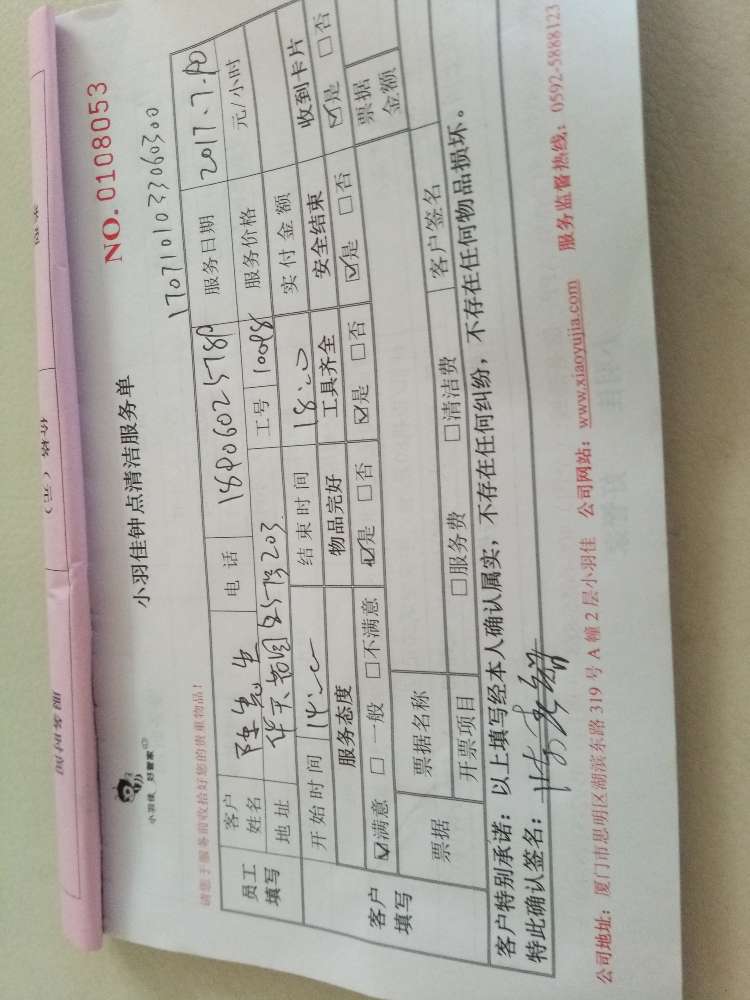 小羽佳钟点清洁服务单
NO. 0108053
小羽佳，好管家
1707101033060300
请您于服务前收拾好您的贵重物品！
员工填写
客户姓名 陈先生 电话 服务日期
地址 203 工号 服务价格 元/小时
开始时间 14:00 结束时间 18:00 实付金额
客户填写
服务态度 物品完好 工具齐全 安全结束 收到卡片
☑满意 □一般 □不满意 ☑是 □否 ☑是 □否 ☑是 □否 ☑是 □否
票据 票据名称 票据金额
开票项目 □服务费 □清洁费 客户签名
客户特别承诺：以上填写经本人确认属实，不存在任何纠纷，不存在任何物品损坏。
特此确认签名：
公司地址：厦门市思明区湖滨东路 319 号 A 幢 2 层小羽佳 公司网站：www.xiaoyujia.com 服务监督热线：0592-5888123